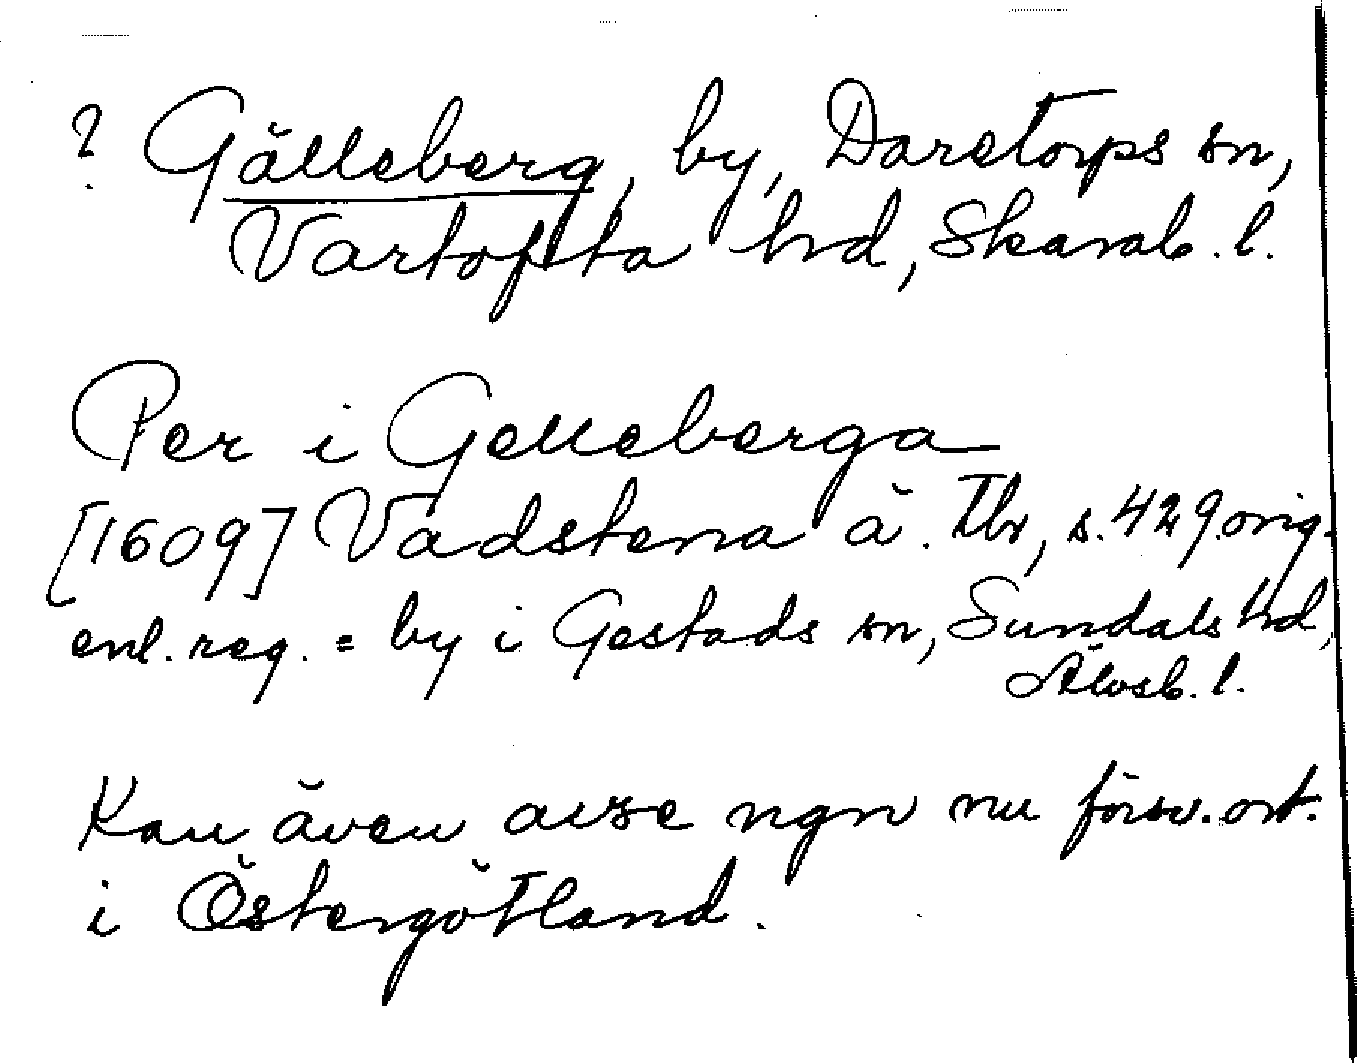 ? Gälleberg, by, Daretorps sn,
Vartofta hrd, Skarab. l.
Per i Gelleberga
[1609] Vadstena ä. Tb, s. 429 orig.
enl. reg. = by i Gestads sn, Sundals hrd,
Älvsb. l.
Kan även avse ngn nu försv. ort.
i Östergötland.